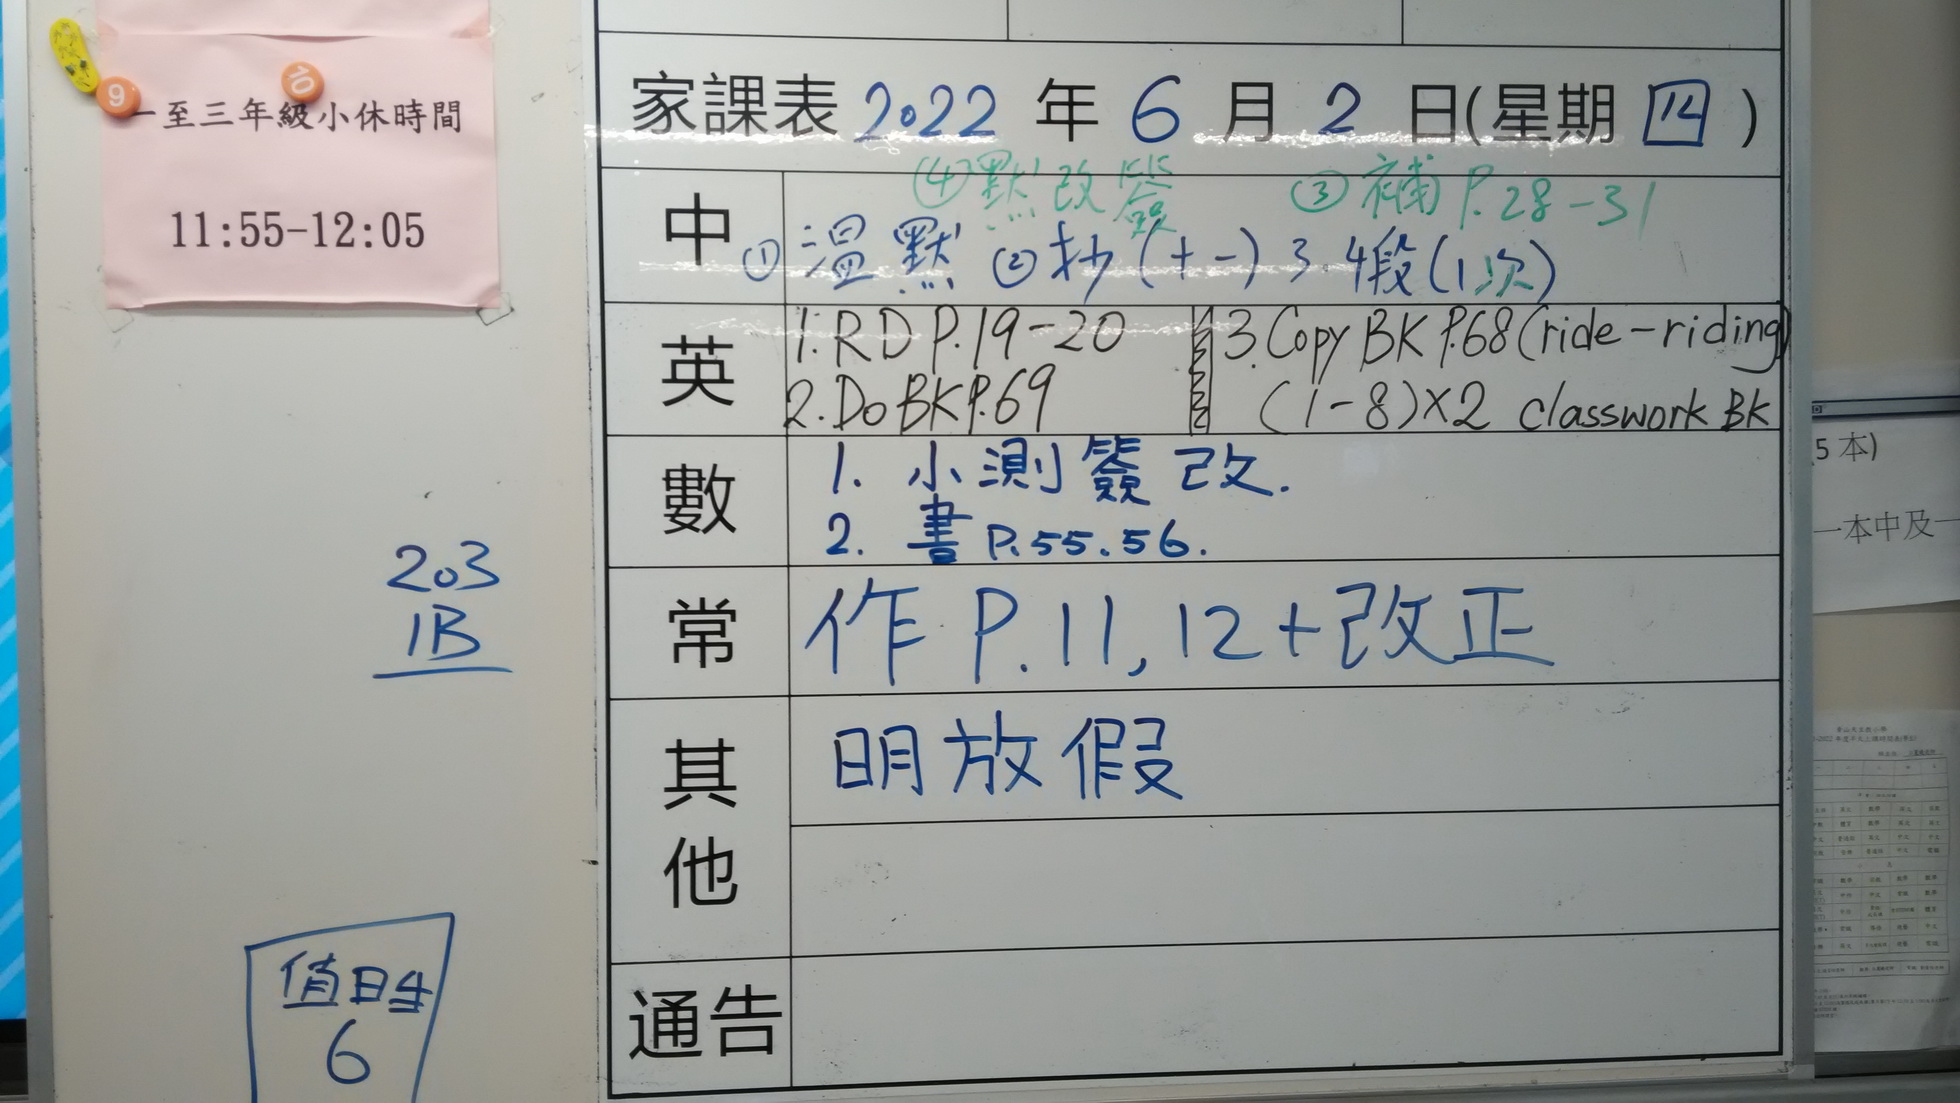 9
10
一至三年級小休時間
11:55-12:05
203
1B
值日生
6
家課表 2022 年 6 月 2 日(星期 四 )
中
④默改簽 ③補 P.28-31
①温默 ②抄(十一) 3.4段(1次)
英
1. RD P.19-20
2. Do BK P.69
3. Copy BK P.68 (ride-riding)
(1-8)×2 classwork BK
數
1. 小測簽改.
2. 書 P.55.56.
常
作 P.11,12+改正
其他
明放假
通告
5 本)
一本中及一